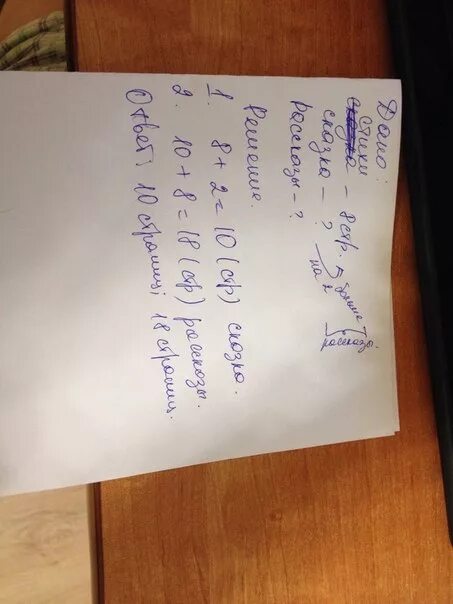 Дано:
стихи
сказка – 8 стр.
сказка – ? на 2 больше
Рассказы – ?
рассказы.
Решение.
1. 8 + 2 = 10 (стр) сказка.
2. 10 + 8 = 18 (стр) рассказы.
Ответ: 10 страниц; 18 страниц.